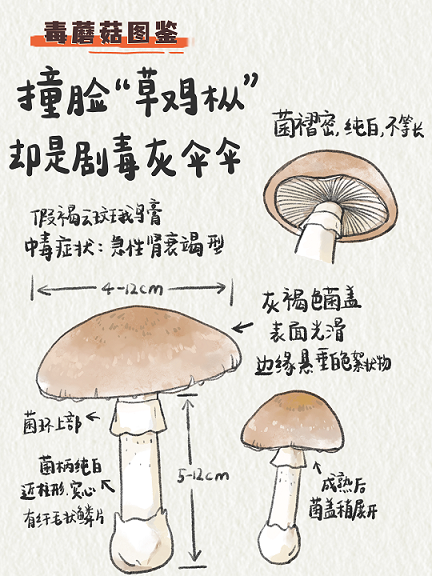 毒蘑菇图鉴
撞脸“草鸡枞”
却是剧毒灰伞伞
菌褶密,纯白,不等长
假褐云斑鹅膏
中毒症状:急性肾衰竭型
4-12cm
灰褐色菌盖
表面光滑
边缘悬垂白色絮状物
菌环上部
菌柄纯白
近柱形,实心
有纤毛状鳞片
5-12cm
成熟后
菌盖稍展开